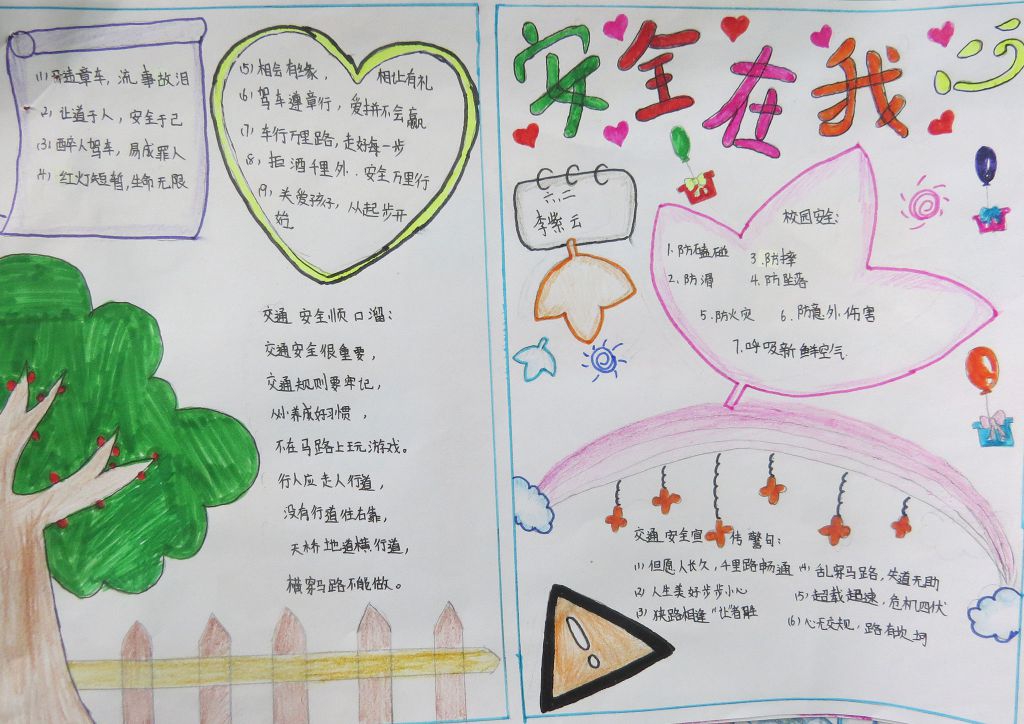 (1) 违章车，流事故泪
(2) 让道于人，安全于己
(3) 醉人驾车，易成罪人
(4) 红灯短暂，生命无限
(5) 相会有缘，相让有礼
(6) 驾车遵章行，爱拼不会赢
(7) 车行万里路，走好每一步
(8) 拒酒千里外．安全万里行
(9) 关爱孩子，从起步开
始
交通安全顺口溜：
交通安全很重要，
交通规则要牢记，
从小养成好习惯，
不在马路上玩游戏。
行人应走人行道，
没有行道往右靠，
天桥地道横行道，
横穿马路不能做。
安全在我
六.二
李紫云
校园安全：
1.防磕碰 3.防摔
2.防滑 4.防坠落
5.防火灾 6.防意外伤害
7.呼吸新鲜空气
交通安全宣传警句：
(1) 但愿人长久，千里路畅通 (4) 乱穿马路，失道无助
(2) 人生美好步步小心 (5) 超载超速，危机四伏
(3) 狭路相逢"让"者胜 (6) 心无交规，路有坎坷